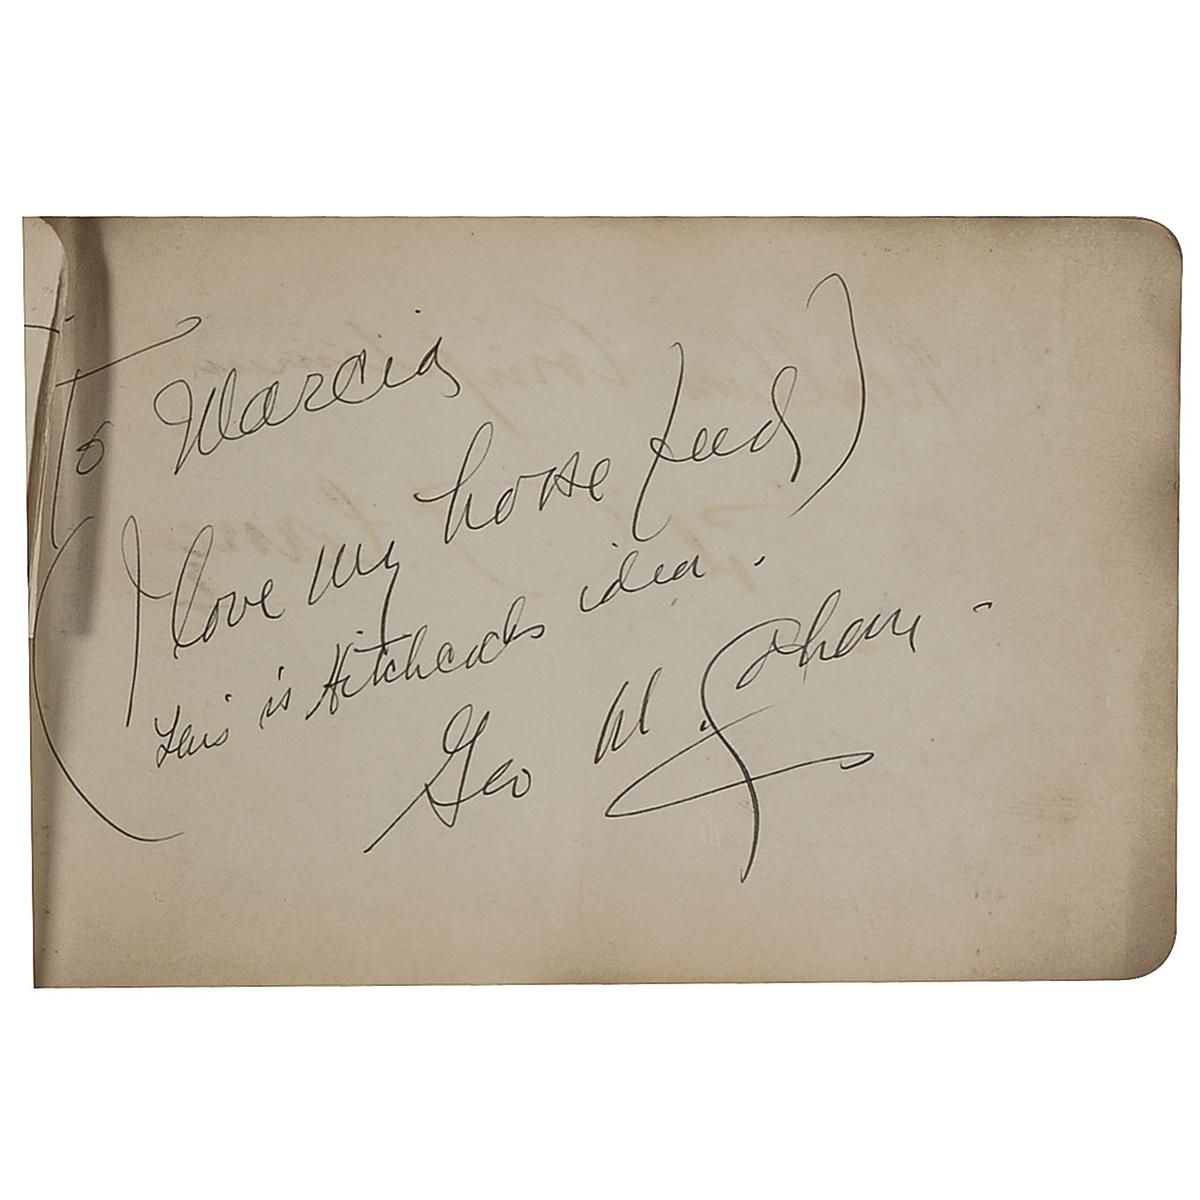 To Marcia
(I love my horse (feed)
This is Hitchcocks idea.
Geo M Cohan -